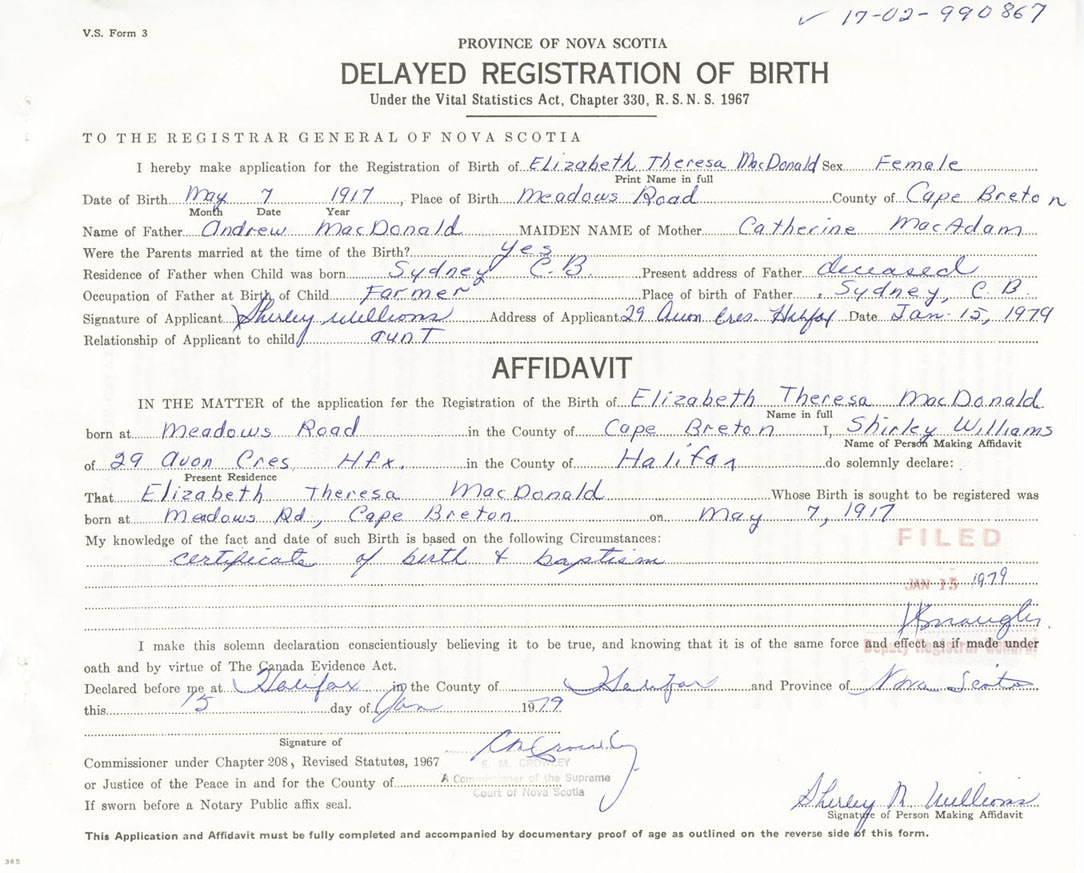 ✓ 17-02-990867
V.S. Form 3
PROVINCE OF NOVA SCOTIA
DELAYED REGISTRATION OF BIRTH
Under the Vital Statistics Act, Chapter 330, R.S.N.S. 1967
TO THE REGISTRAR GENERAL OF NOVA SCOTIA
I hereby make application for the Registration of Birth of Elizabeth Theresa MacDonald Sex Female
Print Name in full
Date of Birth May 7 1917, Place of Birth Meadows Road County of Cape Breton
Month Date Year
Name of Father Andrew MacDonald MAIDEN NAME of Mother Catherine MacAdam
Were the Parents married at the time of the Birth? yes
Residence of Father when Child was born Sydney C.B. Present address of Father deceased
Occupation of Father at Birth of Child Farmer Place of birth of Father Sydney, C B.
Signature of Applicant Shirley Williams Address of Applicant 29 Avon Cres. Halifax Date Jan. 15, 1979
Relationship of Applicant to child aunt
AFFIDAVIT
IN THE MATTER of the application for the Registration of the Birth of Elizabeth Theresa MacDonald
Name in full
born at Meadows Road in the County of Cape Breton I, Shirley Williams
Name of Person Making Affidavit
of 29 Avon Cres, Hfx. in the County of Halifax do solemnly declare:
Present Residence
That Elizabeth Theresa MacDonald Whose Birth is sought to be registered was
born at Meadows Rd, Cape Breton on May 7, 1917
My knowledge of the fact and date of such Birth is based on the following Circumstances:
certificate of birth & baptism
FILED
JAN 15 1979
I make this solemn declaration conscientiously believing it to be true, and knowing that it is of the same force and effect as if made under
Deputy Registrar General
oath and by virtue of The Canada Evidence Act.
Declared before me at Halifax in the County of Halifax and Province of Nova Scotia
this 15 day of Jan 1979
Signature of
Commissioner under Chapter 208, Revised Statutes, 1967
E. M. CROWLEY
or Justice of the Peace in and for the County of
A Commissioner of the Supreme
Court of Nova Scotia
If sworn before a Notary Public affix seal.
Shirley R. Williams
Signature of Person Making Affidavit
This Application and Affidavit must be fully completed and accompanied by documentary proof of age as outlined on the reverse side of this form.
385